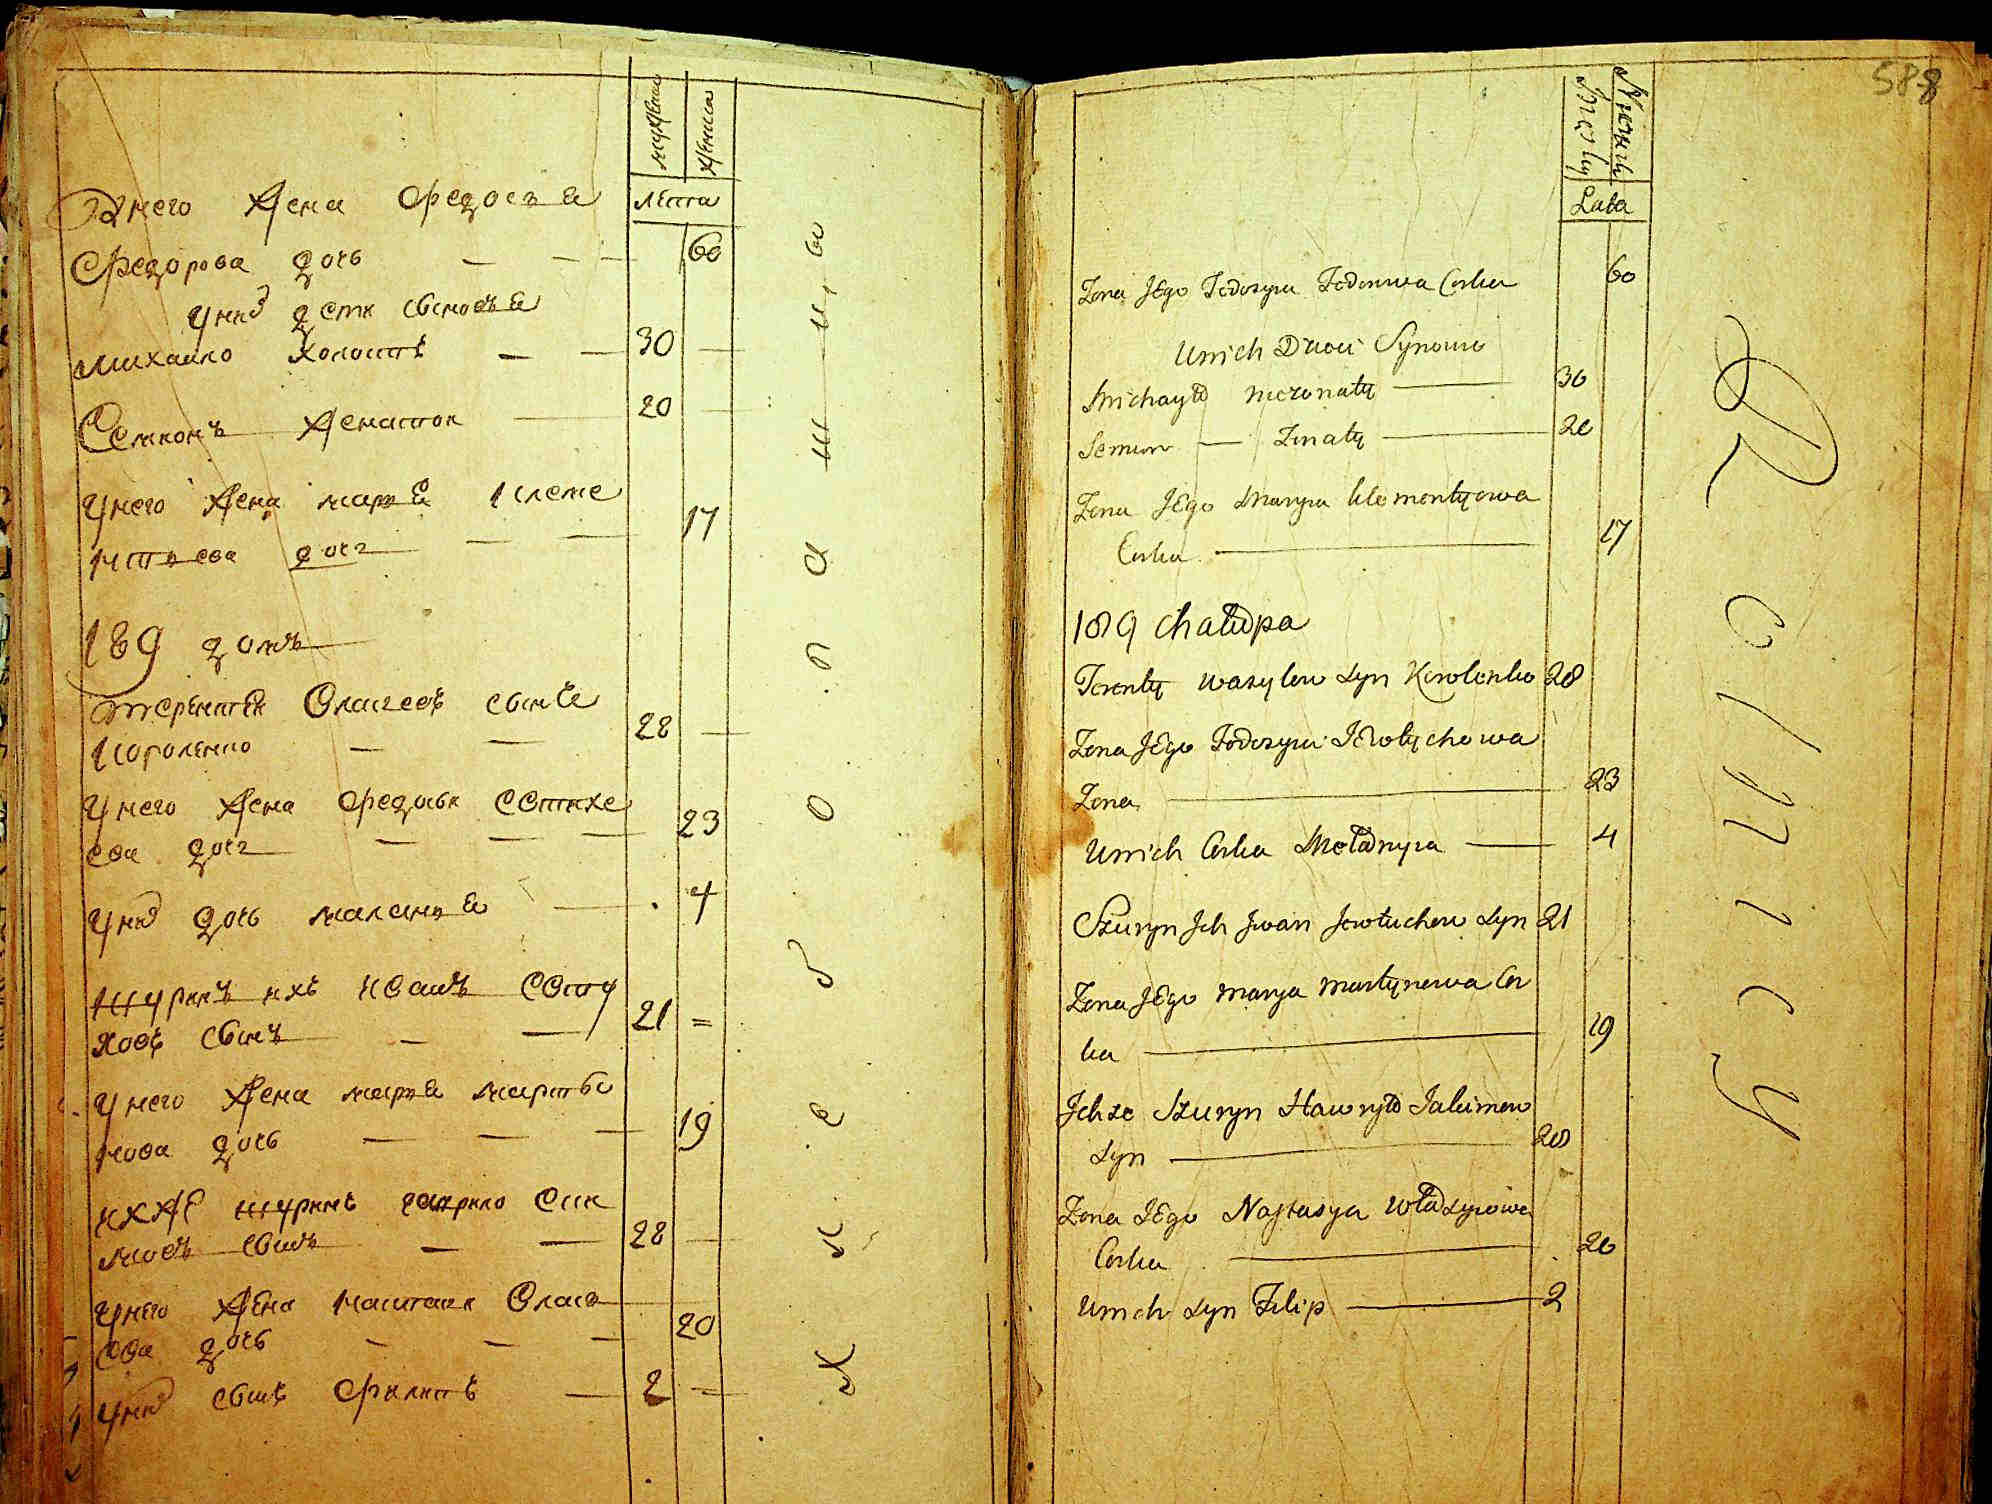 мужеска
женска
лета
Унего жена Федосья
Федорова дочь — — — 60
Уних дети сыновья
Михайло холостъ — — 30 —
Семионъ женатой — 20 —
Унего жена марья Клеме
нтьева дочь — — 17
189 домъ
Терентей Власьевъ сынъ
Короленко — — 28 —
Унего жена Федосья Евтихе
ева дочь — — — 23
Уних дочь маланья — 4
Шуринъ ихъ Иванъ Евту
ховъ сынъ — — 21 =
Унего жена марья марты
нова дочь — — — 19
ихже шуринъ гаврило Еки
мовъ сынъ — — 28 —
Унего жена настасья Влась
ева дочь — — — 20
Уних сынъ Филипъ — 2 —
Хлебопашцы
588
Męskij
Żenskij
Lata
Zona JEgo Fedosyia Fedorowa Corka 60
Unich Dwoci Synowe
Michayło niezonaty — 30
Semion — Zonaty — 20
Zona JEgo Maryia klementyowa
Corka — 17
189 Chałupa
Terenty wasylew Syn Korolenko 28
Zona JEgo Fedosyia JEwtychowa
Zona — 23
Unich Corka Mełanyia — 4
Szuryn Jch Jwan Jewtuchow Syn 21
Zona JEgo marya martynowa Cor
ka — 19
Jchze Szuryn Hawryło Jakimow
Syn — 28
Zona JEgo Nastasya własyiowa
Corka — 20
Unich Syn Filip — 2
Rolnicy